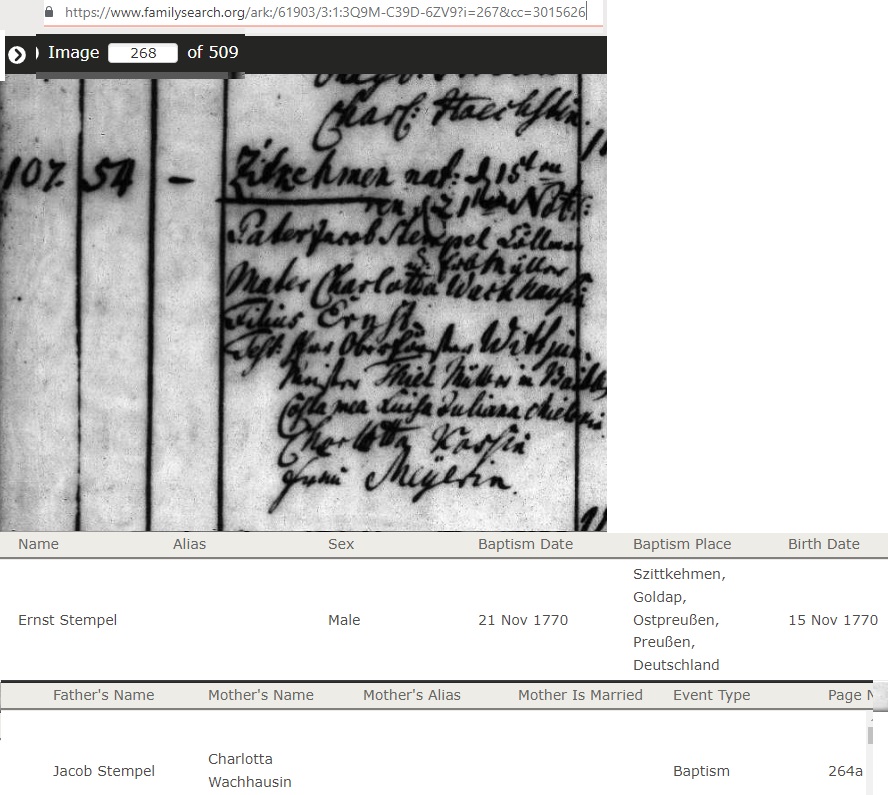 https://www.familysearch.org/ark:/61903/3:1:3Q9M-C39D-6ZV9?i=267&cc=3015626
Image 268 of 509
Charl:
107. 54 - Zitkehmen nat: d 15t
ren d 21ten Nov:
Pater Jacob Stempel
Mater Charlotta Wachhausin
Filius Ernst
Test: Herr Oberförster
Meister Thiel Müller in
Costa mea Luisa Juliana
Charlotta
Frau Meÿerin.
Name Alias Sex Baptism Date Baptism Place Birth Date
Szittkehmen,
Goldap,
Ernst Stempel Male 21 Nov 1770 Ostpreußen, 15 Nov 1770
Preußen,
Deutschland
Father's Name Mother's Name Mother's Alias Mother Is Married Event Type Page N
Charlotta
Jacob Stempel Baptism 264a
Wachhausin